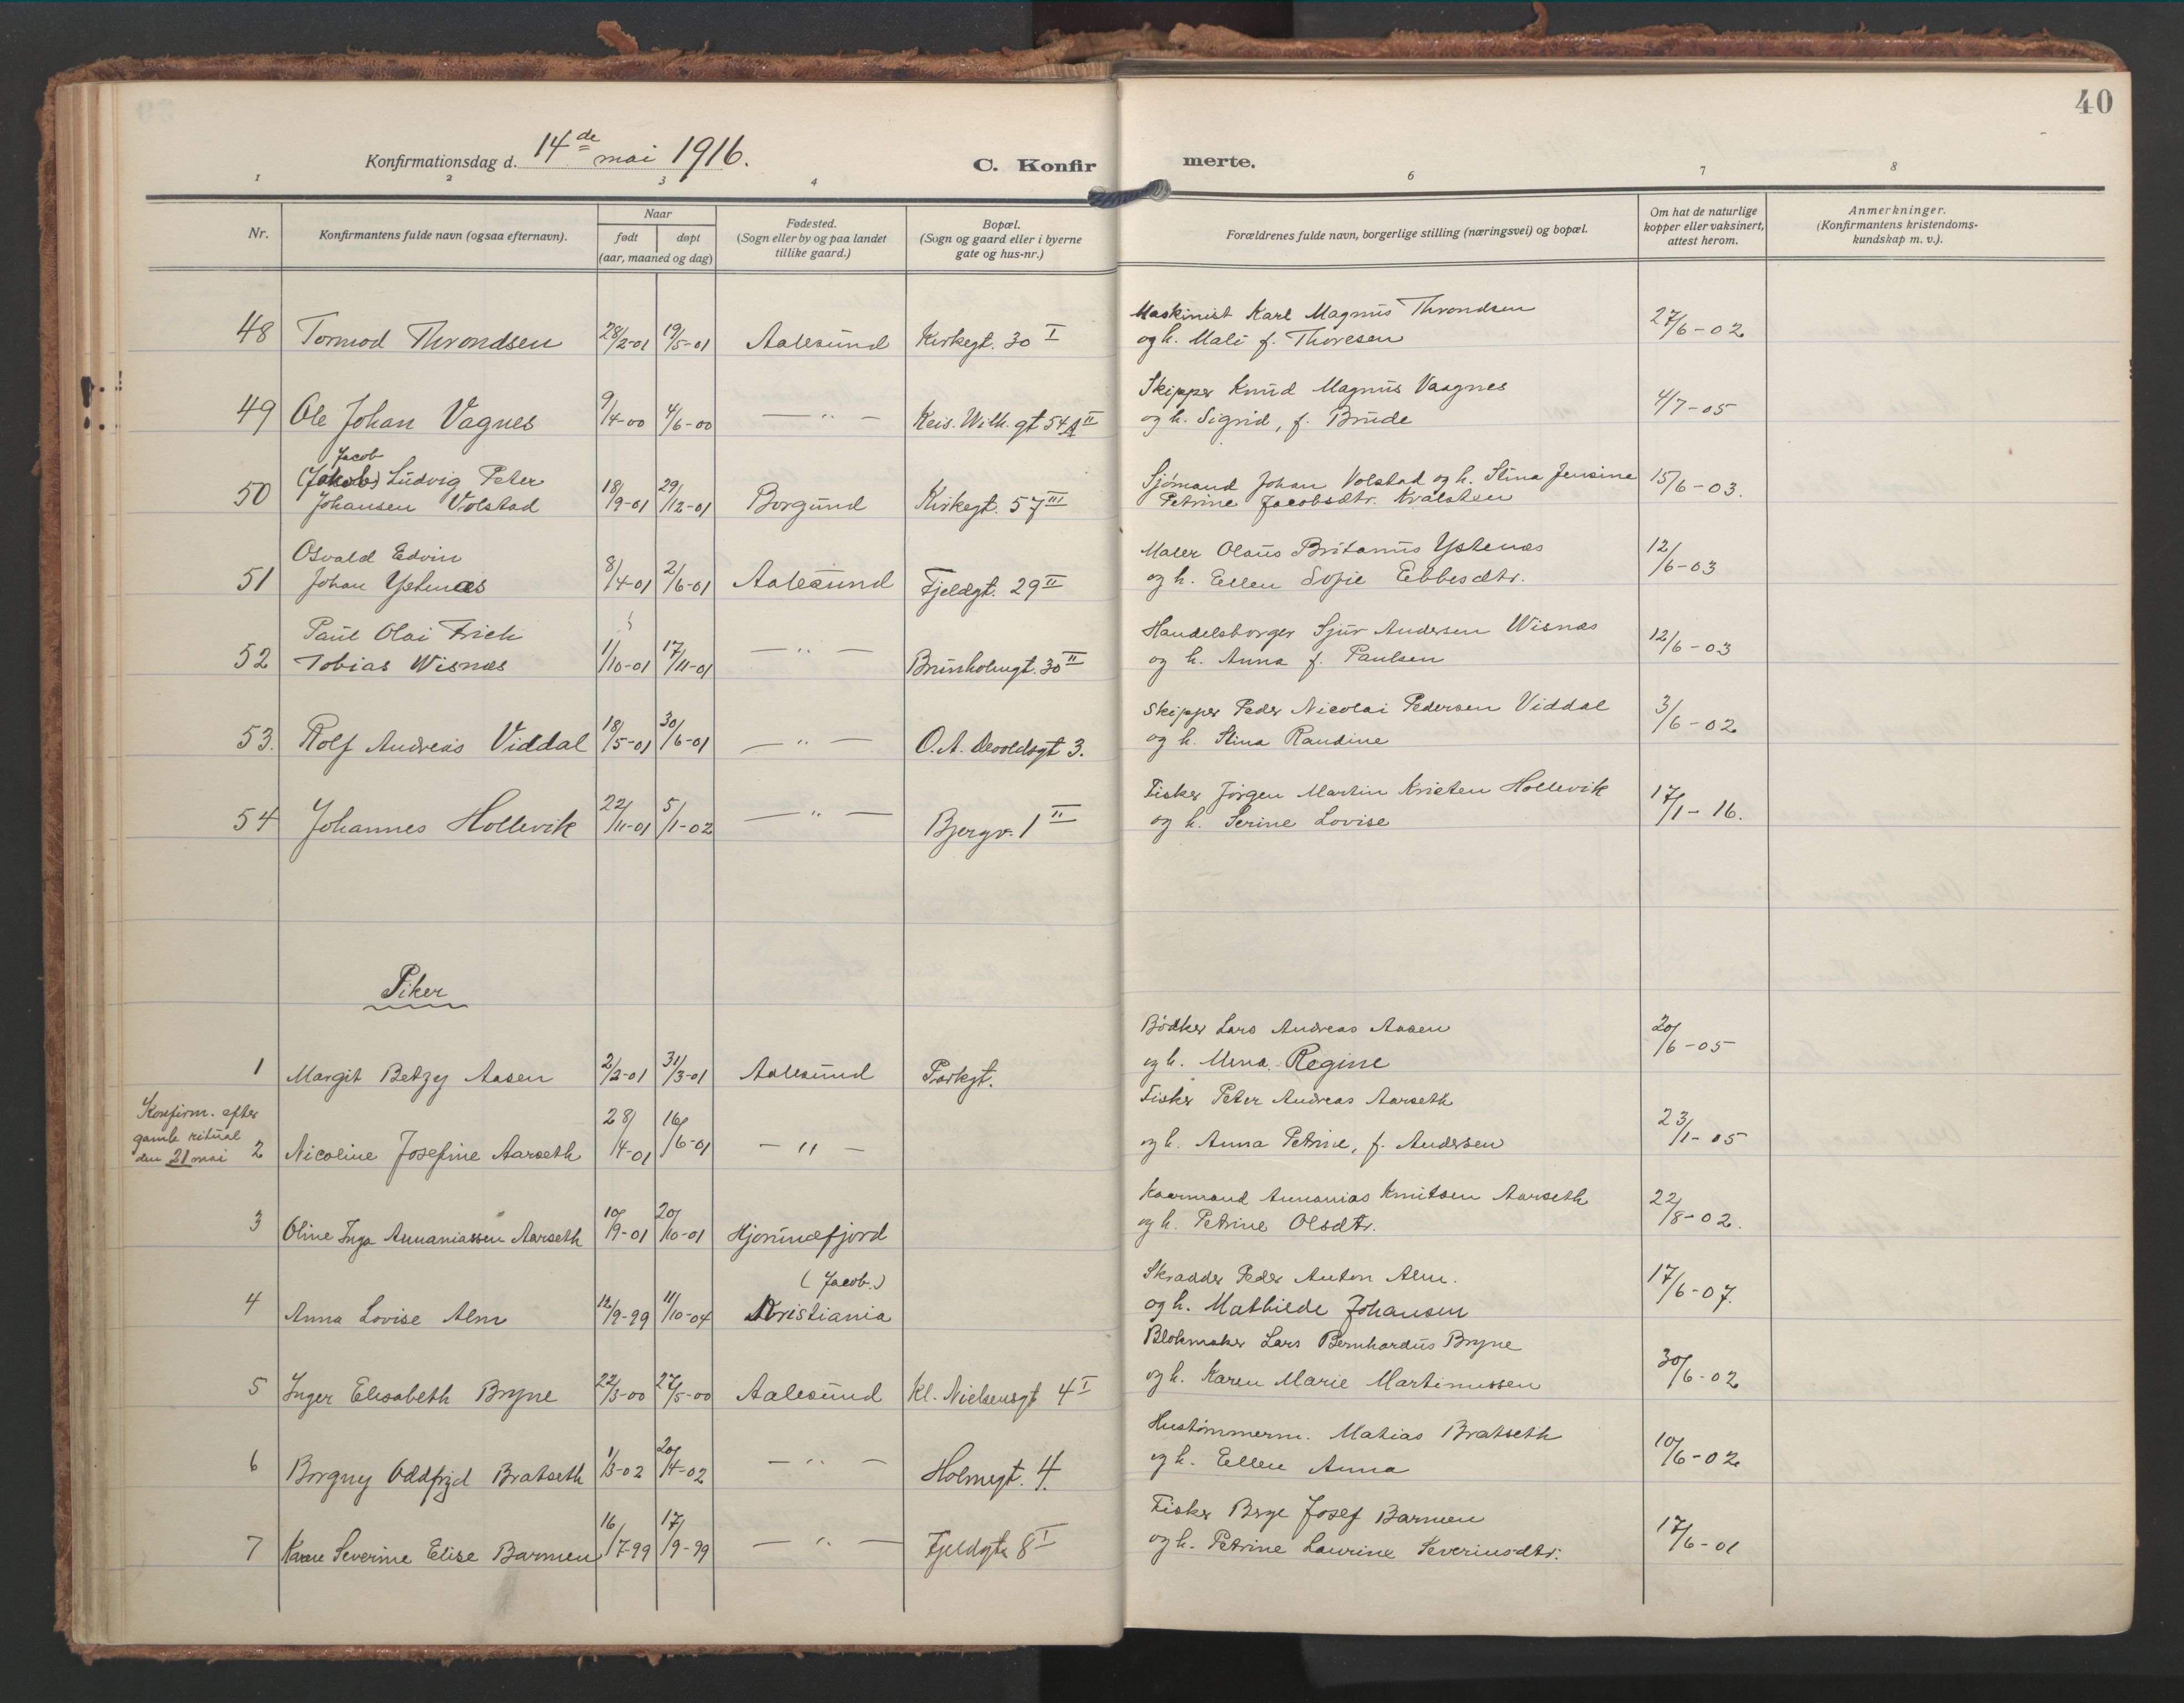 40
Konfirmationsdag d. 14de mai 1916.
C. Konfirmerte.
1 2 3 4 6 7 8
Nr.
Konfirmantens fulde navn (ogsaa efternavn).
Naar
født
døpt
(aar, maaned og dag)
Fødested.
(Sogn eller by og paa landet
tillike gaard.)
Bopæl.
(Sogn og gaard eller i byerne
gate og hus-nr.)
Forældrenes fulde navn, borgerlige stilling (næringsvei) og bopæl.
Om hat de naturlige
kopper eller vaksinert,
attest herom.
Anmerkninger.
(Konfirmantens kristendoms-
kundskap m. v.).
48 Tormod Throndsen 28/2-01 19/5-01 Aalesund Kirkegt. 30 I
Maskinist Karl Magnus Throndsen
og h. Mali f. Thoresen
27/6-02
49 Ole Johan Vagnes 9/4-00 4/6-00 — " — Keis. Wilh. gt 54 A II
Skipper Knud Magnus Vaagnes
og h. Sigrid, f. Brude
4/7-05
Jacob
50 (Jakob) Ludvig Peter
Johansen Volstad 18/9-01 29/12-01 Borgund Kirkegt. 57 III
Sjømand Johan Volstad og h. Stina Jensine
Petrine Jacobsdtr. Kvalsten
15/6-03.
51 Osvald Edvin
Johan Ystenæs 8/4-01 2/6-01 Aalesund Fjeldgt. 29 II
Maler Olaus Britanus Ystenæs
og h. Ellen Sofie Ebbesdtr.
12/6-03
52 Paul Olai Frich
Tobias Wisnæs 1/10-01 17/11-01 — " — Brunholmgt. 30 II
Handelsborger Sjur Andersen Wisnæs
og h. Anna f. Paulsen
12/6-03
53. Rolf Andreas Viddal 18/5-01 30/6-01 — " — O. A. Devoldsgt 3.
Skipper Peder Nicolai Pedersen Viddal
og h. Stina Randine
3/6-02
54 Johannes Hollevik 22/11-01 5/1-02 — " — Bjergv. 1 II
Fisker Jørgen Martin Kristen Hollevik
og h. Serine Lovise
17/1-16.
Piker
1 Margit Betzy Aasen 2/2-01 31/3-01 Aalesund Parkgt.
Bødker Lars Andreas Aasen
og h. Mena Regine
20/6-05
Konfirm. efter
gamle ritual
den 21 mai
2 Nicoline Josefine Aarseth 28/4-01 16/6-01 — " —
Fisker Peter Andreas Aarseth
og h. Anna Petrine, f. Andersen
23/1-05
3 Oline Inga Annaniassen Aarseth 10/9-01 20/10-01 Hjørundfjord
Kaarmand Annanias Knutsen Aarseth
og h. Petrine Olsdtr.
22/8-02.
4 Anna Lovise Alm 12/9-99 11/10-04 (Jacob.)
Kristiania
Skradder Peder Anton Alm.
og h. Mathilde Johansen
17/6-07.
5 Inger Elisabeth Bryne 22/3-00 27/5-00 Aalesund Kl. Nielsensgt 4 I
Blokmaker Lars Bernhardus Bryne
og h. Karen Marie Martinussen
30/6-02
6 Borgny Oddfrid Bratseth 1/3-02 20/4-02 — " — Holmegt. 4.
Hustømmerm. Matias Bratseth
og h. Ellen Anna
10/6-02
7 Karen Severine Elise Barmen 16/7-99 17/9-99 — " — Fjeldgt. 8 I
Fisker Berge Josef Barmen
og h. Petrine Laurine Severinsdtr.
17/6-01